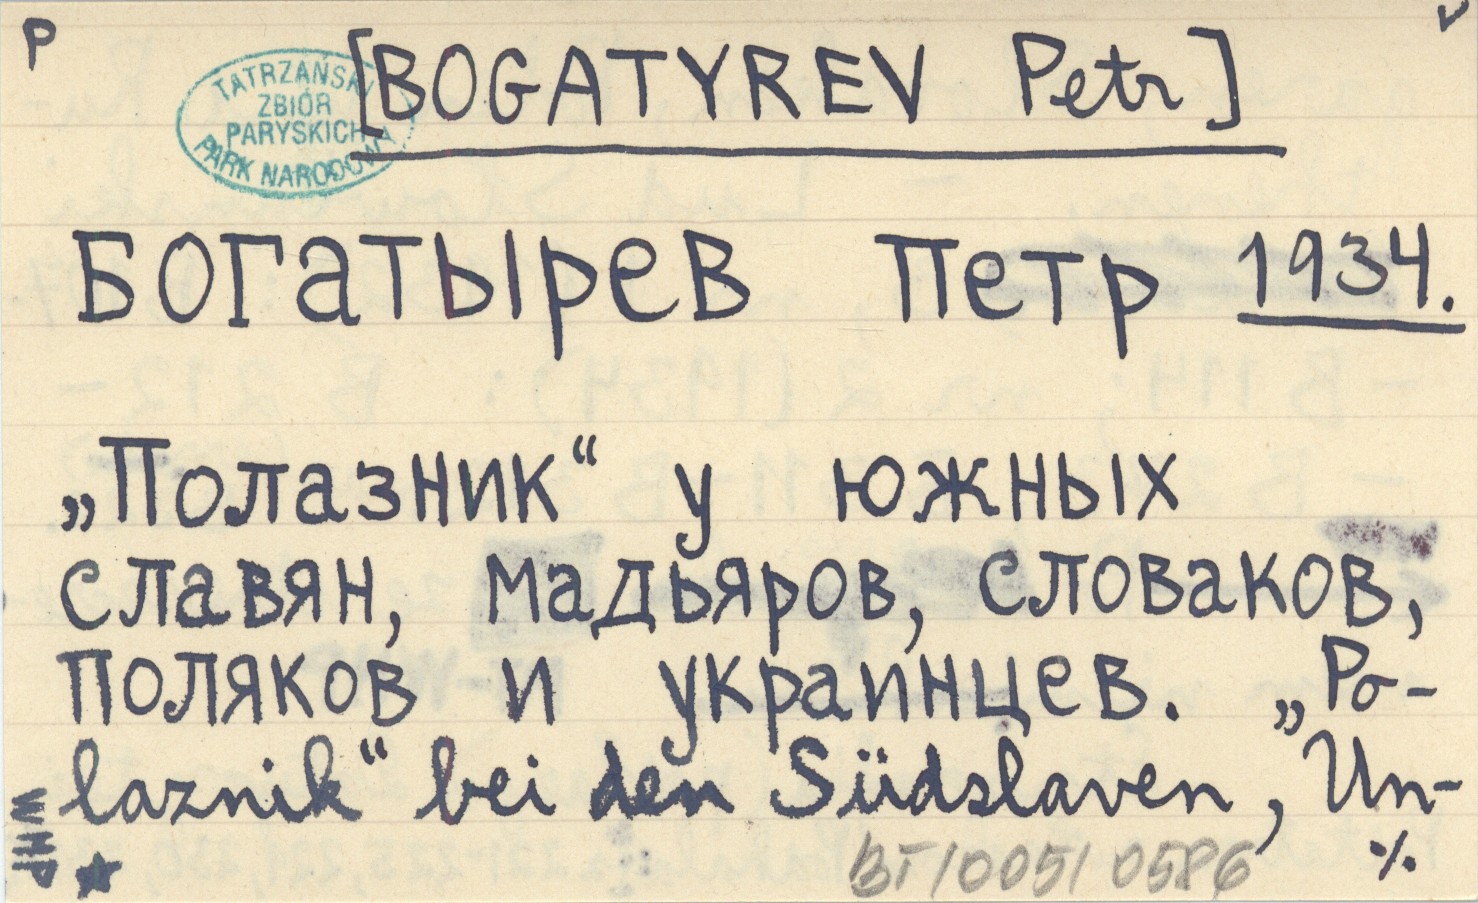 P
[BOGATYREV Petr]
TATRZAŃSKI
ZBIÓR
PARYSKICH
PARK NARODOWY
Богатырев Петр 1934.
„Полазник“ у южных
славян, мадьяров, словаков,
поляков и украинцев. „Po-
laznik“ bei den Südslaven, Un-
WHP
BT/0051 0586
%